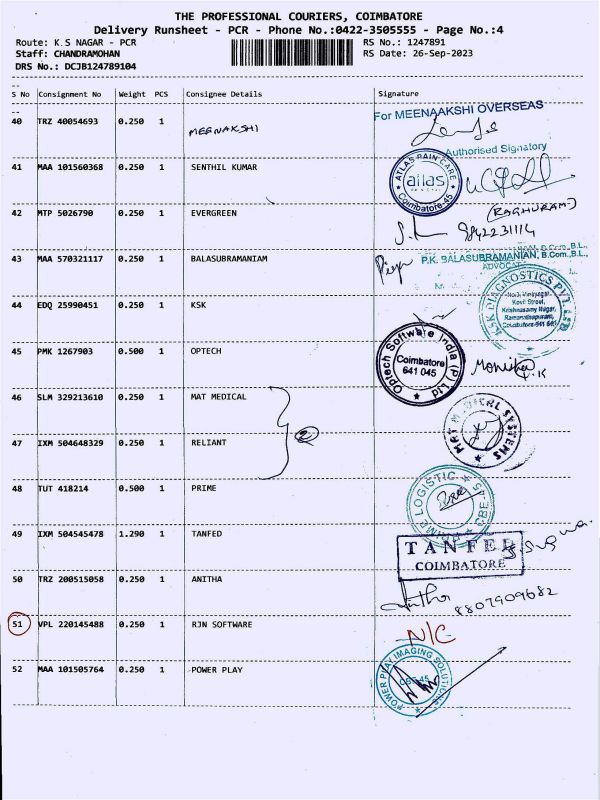 THE PROFESSIONAL COURIERS, COIMBATORE
Delivery Runsheet - PCR - Phone No.:0422-3505555 - Page No.:4
Route: K.S NAGAR - PCR RS No.: 1247891
Staff: CHANDRAMOHAN RS Date: 26-Sep-2023
DRS No.: DCJB124789104
S No Consignment No Weight PCS Consignee Details Signature
40 TRZ 40054693 0.250 1 MEENAKSHI For MEENAAKSHI OVERSEAS
Authorised Signatory
41 MAA 101560368 0.250 1 SENTHIL KUMAR ATLAS PAIN CARE atlas Coimbatore-45
(RAGHURAM)
42 MTP 5026790 0.250 1 EVERGREEN 9842231114
43 MAA 570321117 0.250 1 BALASUBRAMANIAM P.K. BALASUBRAMANIAN, B.Com.,B.L.,
ADVOCAT
44 EDQ 25990451 0.250 1 KSK KSK DIAGNOSTICS PVT. LTD
Kovil Street,
Krishnasamy Nagar,
Ramanathapuram,
Coimbatore-641 045
45 PMK 1267903 0.500 1 OPTECH Optech Software India (P) Ltd
Coimbatore
641 045
46 SLM 329213610 0.250 1 MAT MEDICAL MAT MEDICAL SYSTEMS
47 IXM 504648329 0.250 1 RELIANT 2
48 TUT 418214 0.500 1 PRIME PRIME LOGISTIC CBE-45
49 IXM 504545478 1.290 1 TANFED TANFED
COIMBATORE
50 TRZ 200515058 0.250 1 ANITHA Anitha
8807909682
51 VPL 220145488 0.250 1 RJN SOFTWARE N/C
52 MAA 101505764 0.250 1 POWER PLAY POWER PLAY IMAGING SOLUTIONS CBE-45